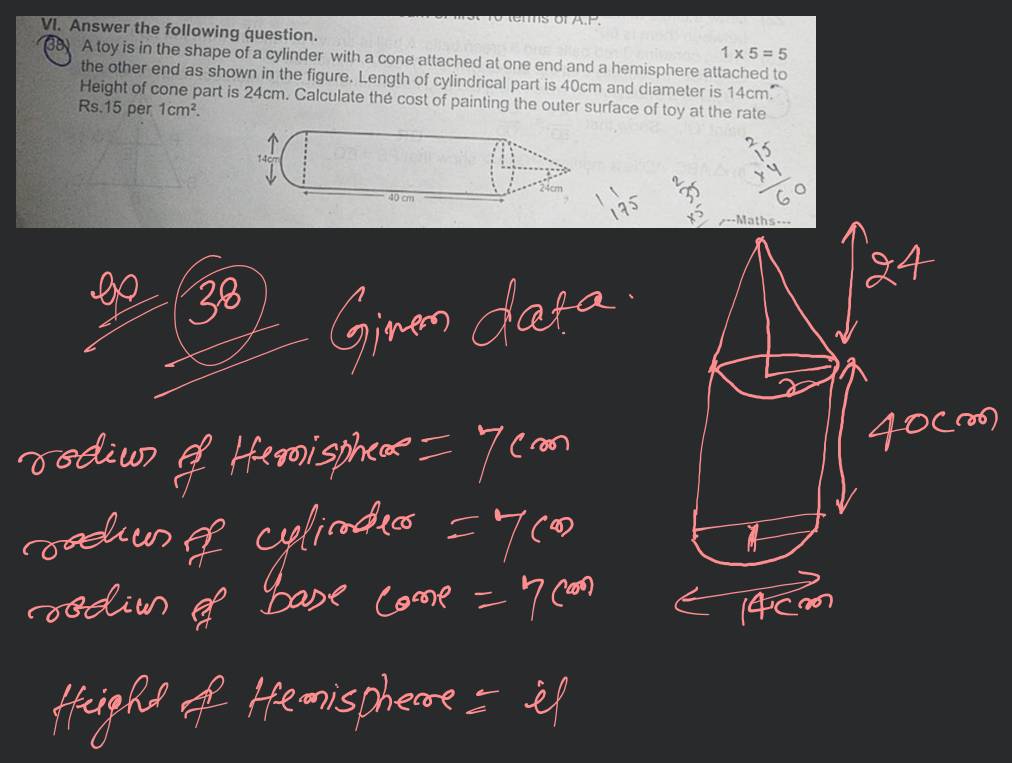 VI. Answer the following question.
1 x 5 = 5
38) A toy is in the shape of a cylinder with a cone attached at one end and a hemisphere attached to
the other end as shown in the figure. Length of cylindrical part is 40cm and diameter is 14cm.
Height of cone part is 24cm. Calculate the cost of painting the outer surface of toy at the rate
Rs.15 per 1cm².
14cm
40 cm
24cm
175
60
---Maths---
38
Given data
24
40cm
radius of Hemisphere = 7cm
radius of cylinder = 7cm
radius of base cone = 7cm
14cm
Height of Hemisphere =